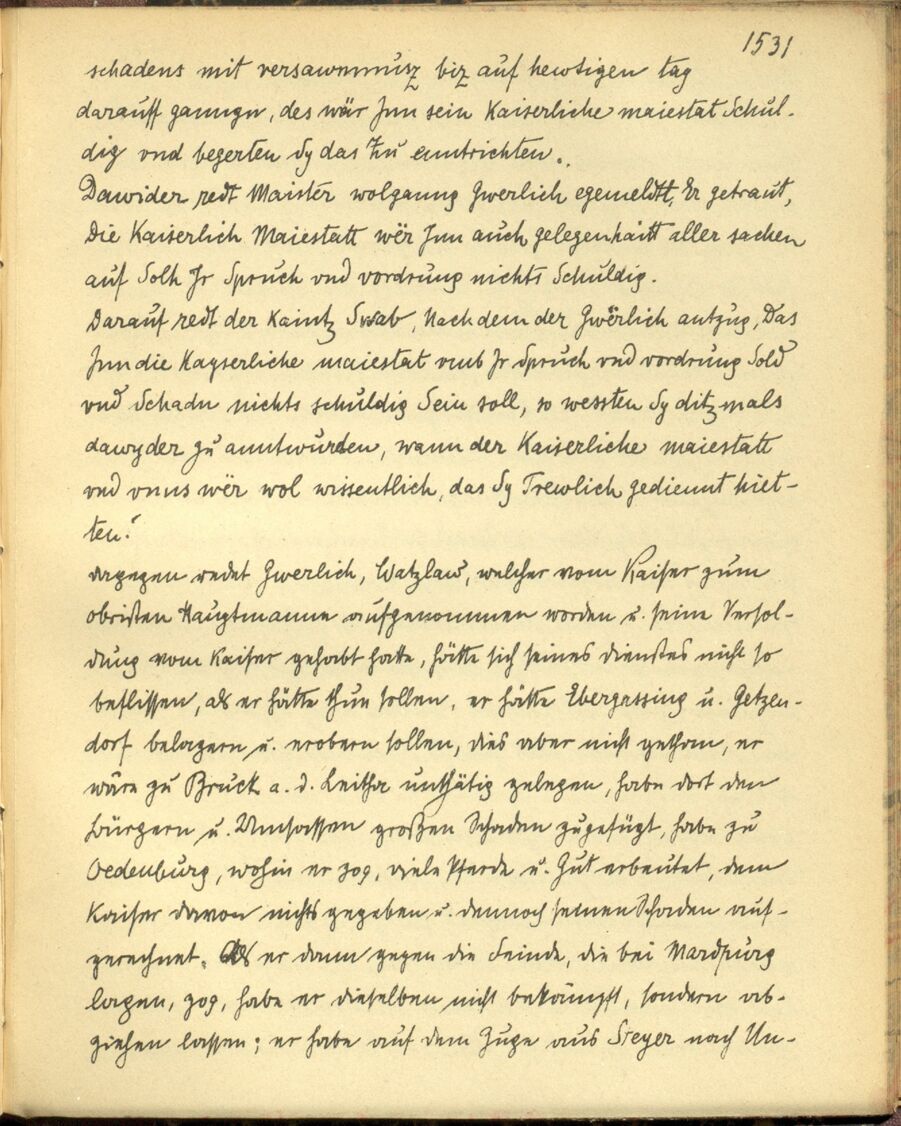 1531
schadens mit versawmnusz biz auf hewtigen tag
darauff ganngn, des wär Jnn sein Kaiserliche maiestat Schul-
dig vnd begerten Sy das Zu enntrichten.
Dawider redt Maister wolganng Gwerlich egemeldtt, Er getraut,
die Kaiserlich Maiestatt wër Jnn auch gelegenhaitt aller sachen
auf Solh Jr Spruch vnd vordrung nichts Schuldig.
Darauf redt der Kaintz Swab, Nachdem der Gwërlich antzug, Das
Jnn die Kayserliche maiestat vmb Jr Spruch vnd vordrung Sold
vnd Schadn nichts schuldig Sein soll, so wessten Sy ditzmals
dawyder zu anntwurden, wann der Kaiserliche maiestatt
vnd vnns wër wol wissentlich, das Sy Trewlich gediennt hiet-
ten.
dagegen redet Gwerlich, Watzlaw, welcher vom Kaiser zum
obristen Hauptmanne aufgenommen worden u. seine Versol-
dung vom Kaiser gehabt hatte, hätte sich seines dienstes nicht so
beflissen, als er hätte thun sollen, er hätte Ebergassing u. Getzen-
dorf belagern u. erobern sollen, dies aber nicht gethan, er
wäre zu Bruck a. d. Leitha unthätig gelegen, habe dort den
Bürgern u. Umsassen großen Schaden zugefügt, habe zu
Oedenburg, wohin er zog, viele Pferde u. Gut erbeutet, dem
Kaiser davon nichts gegeben u. dennoch seinen Schaden auf-
gerechnet. Als er dann gegen die Feinde, die bei Mardpurg
lagen, zog, habe er dieselben nicht bekämpft, sondern ab-
ziehen lassen; er habe auf dem Zuge aus Steyer nach Un-